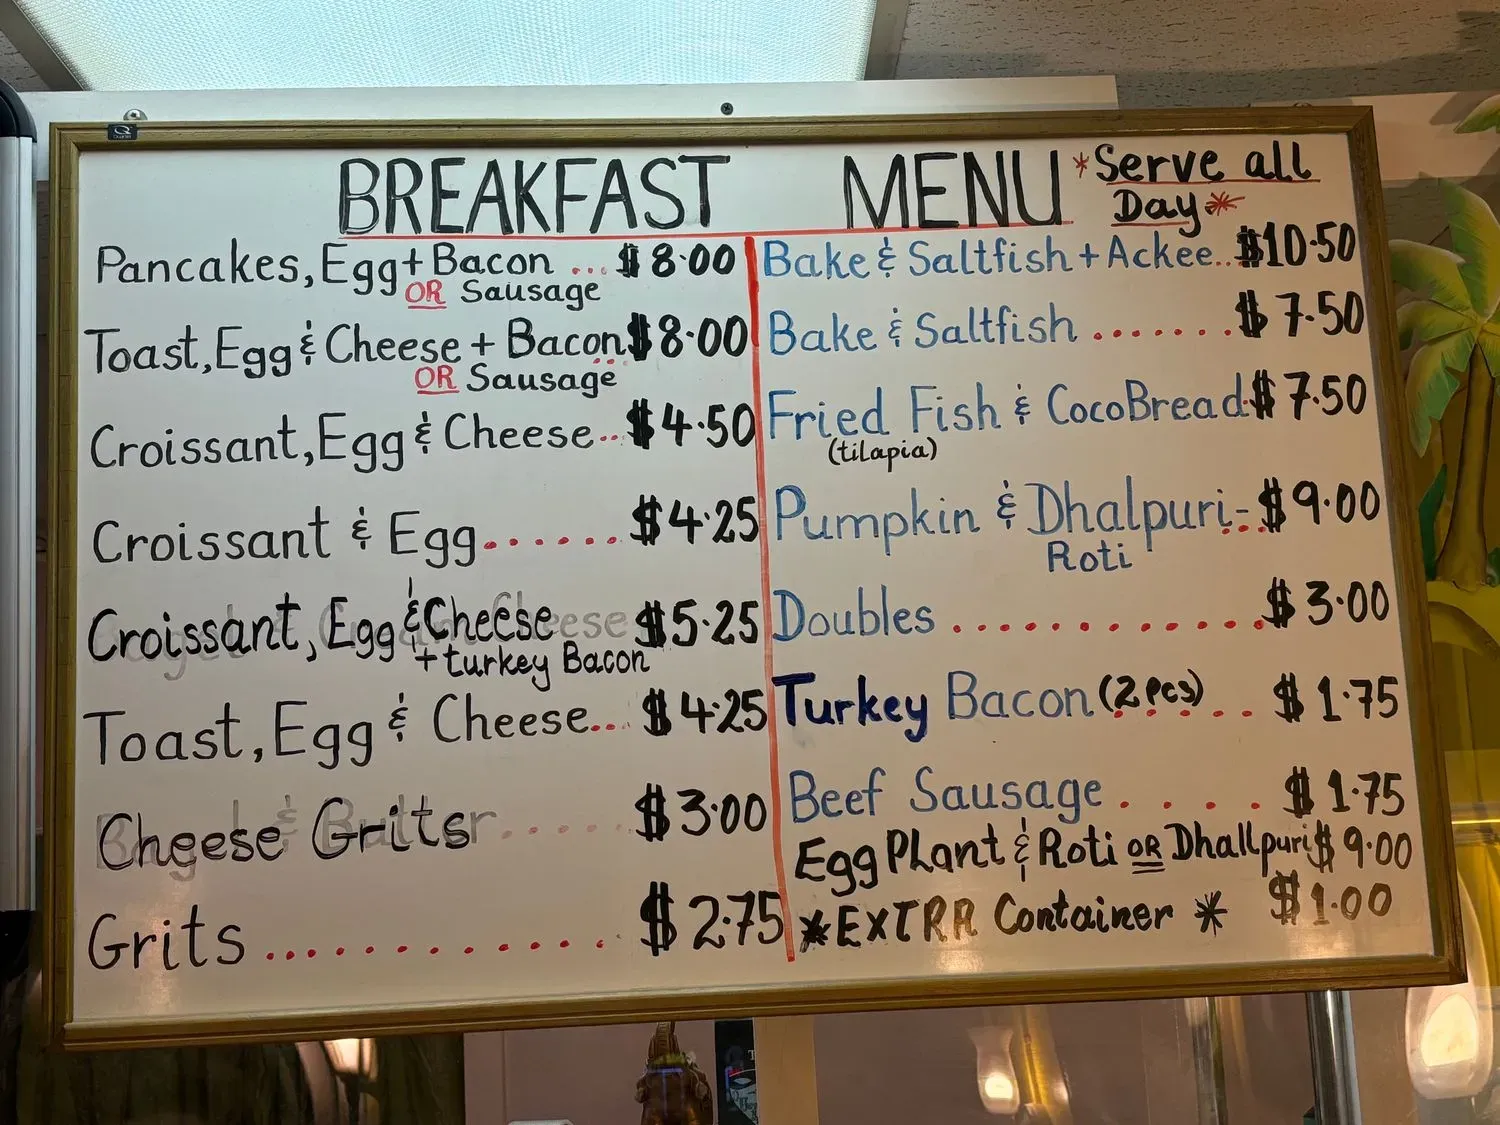 BREAKFAST MENU *Serve all
Day*
Pancakes, Egg + Bacon ... $ 8.00
OR Sausage
Toast, Egg & Cheese + Bacon $8.00
OR Sausage
Croissant, Egg & Cheese .. $4.50
Croissant & Egg ...... $4.25
Croissant, Egg & Cheese $5.25
+ turkey Bacon
Toast, Egg & Cheese... $4.25
Cheese Grits ..... $3.00
Grits ............ $2.75
Bake & Saltfish + Ackee.. $10.50
Bake & Saltfish ....... $ 7.50
Fried Fish & CocoBread $ 7.50
(tilapia)
Pumpkin & Dhalpuri-... $9.00
Roti
Doubles ............. $ 3.00
Turkey Bacon (2 pcs) .. $ 1.75
Beef Sausage . . . . $ 1.75
Egg PLant & Roti OR Dhallpuri $ 9.00
*EXTRA Container * $1.00